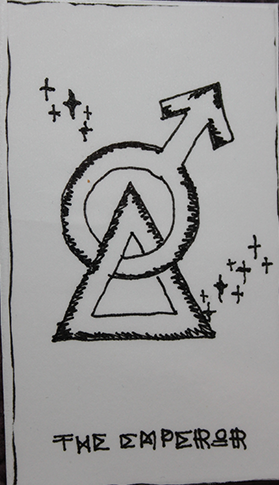 THE EMPEROR